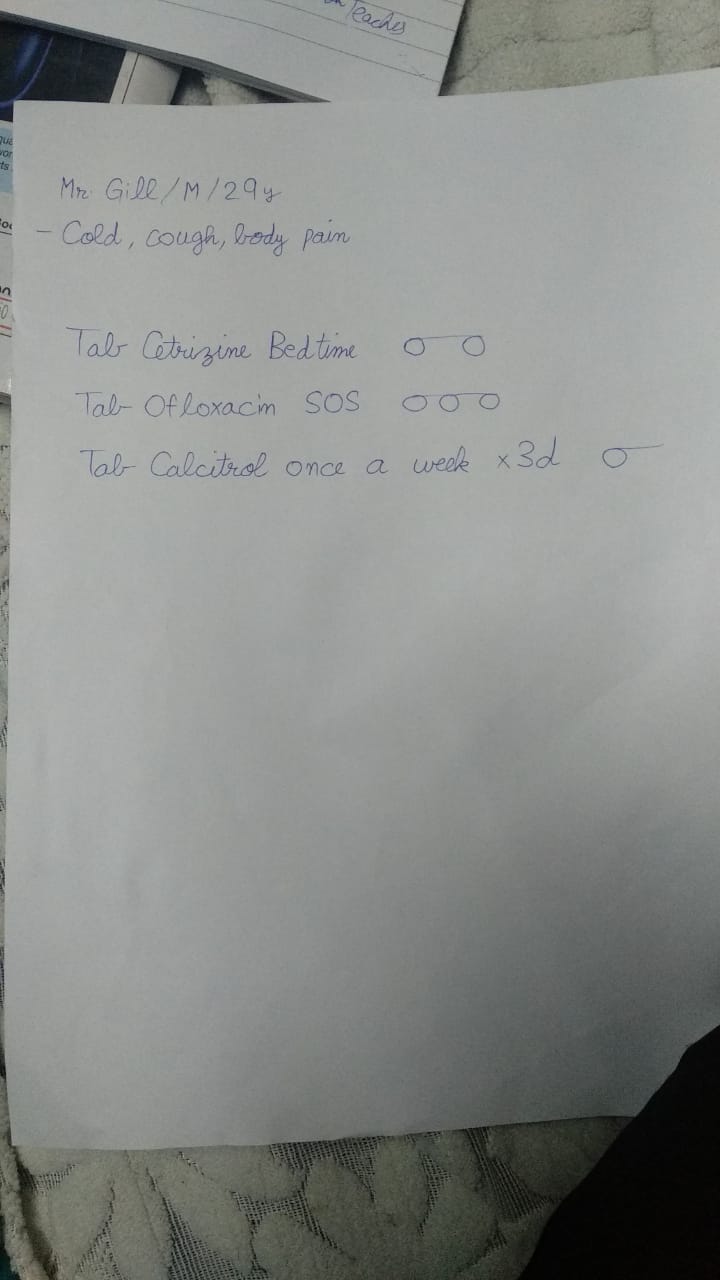 Teaches
Mr. Gill/M/29y
- Cold, cough, body pain
Tab Cetrizine Bedtime
Tab Ofloxacin SOS
Tab Calcitrol once a week x3d